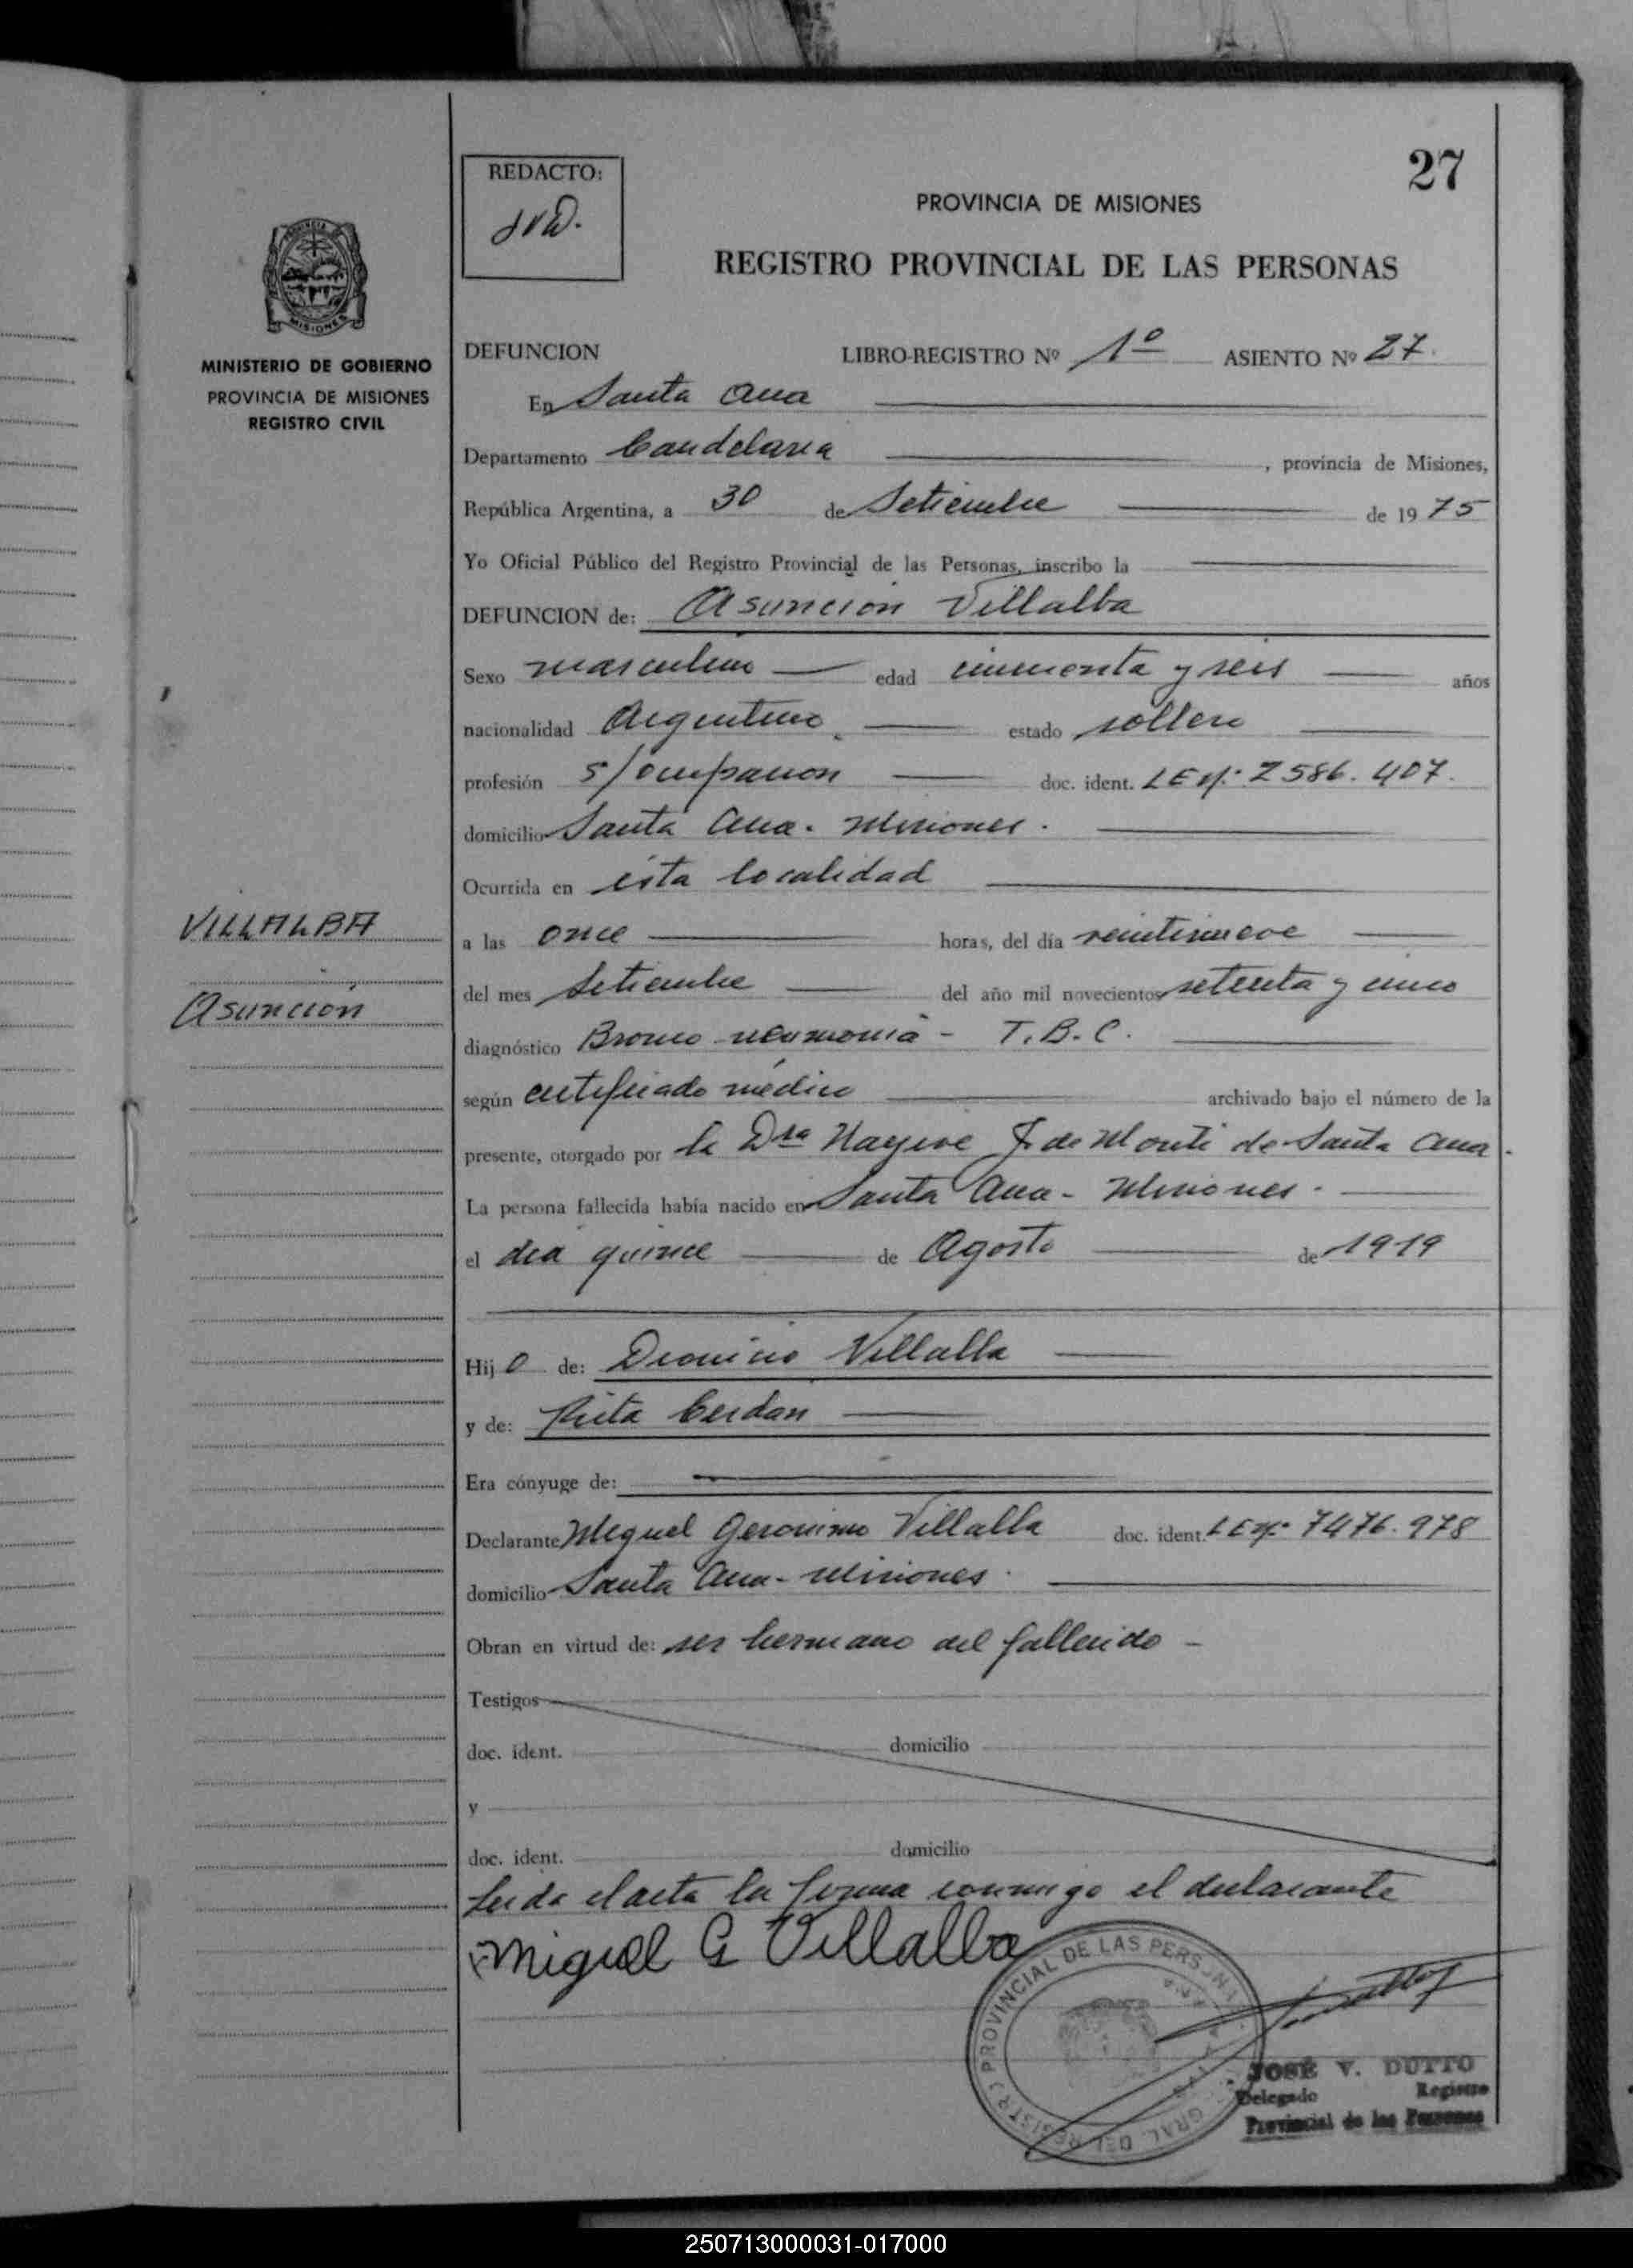 27
REDACTO:
PROVINCIA DE MISIONES
REGISTRO PROVINCIAL DE LAS PERSONAS
MISIONES
MINISTERIO DE GOBIERNO
PROVINCIA DE MISIONES
REGISTRO CIVIL
DEFUNCION LIBRO-REGISTRO Nº 1º ASIENTO Nº 27.
En Santa Ana
Departamento Candelaria, provincia de Misiones,
República Argentina, a 30 de Setiembre de 1975
Yo Oficial Público del Registro Provincial de las Personas, inscribo la
DEFUNCION de: Asuncion Villalba
Sexo masculino edad cincuenta y seis años
nacionalidad Argentino. estado soltero
profesión s/ocupacion doc. ident. LE Nº: 2586.407.
domicilio Santa Ana. Misiones.
Ocurrida en ésta localidad
VILLALBA
Asunción
a las once horas, del día veintinueve
del mes Setiembre del año mil novecientos setenta y cinco
diagnóstico Bronco neumonia - T.B.C.
según certificado médico archivado bajo el número de la
presente, otorgado por la Dra Nayeve de Monti de Santa Ana.
La persona fallecida había nacido en Santa Ana - Misiones.
el dia quince de Agosto de 1919
Hijo de: Dionicio Villalba
y de: Rita Cerdan
Era cónyuge de:
Declarante Miguel Geronimo Villalba doc. ident. LE Nº 7476.978
domicilio Santa Ana - Misiones.
Obran en virtud de: ser hermano del fallecido -
Testigos
doc. ident. domicilio
y
doc. ident. domicilio
Leida el acta la firma conmigo el declarante
Miguel G Villalba
REGISTRO PROVINCIAL DE LAS PERSONAS
GRAL. DEL
JOSÉ V. DUTTO
Delegado Registro
Provincial de las Personas
250713000031-017000